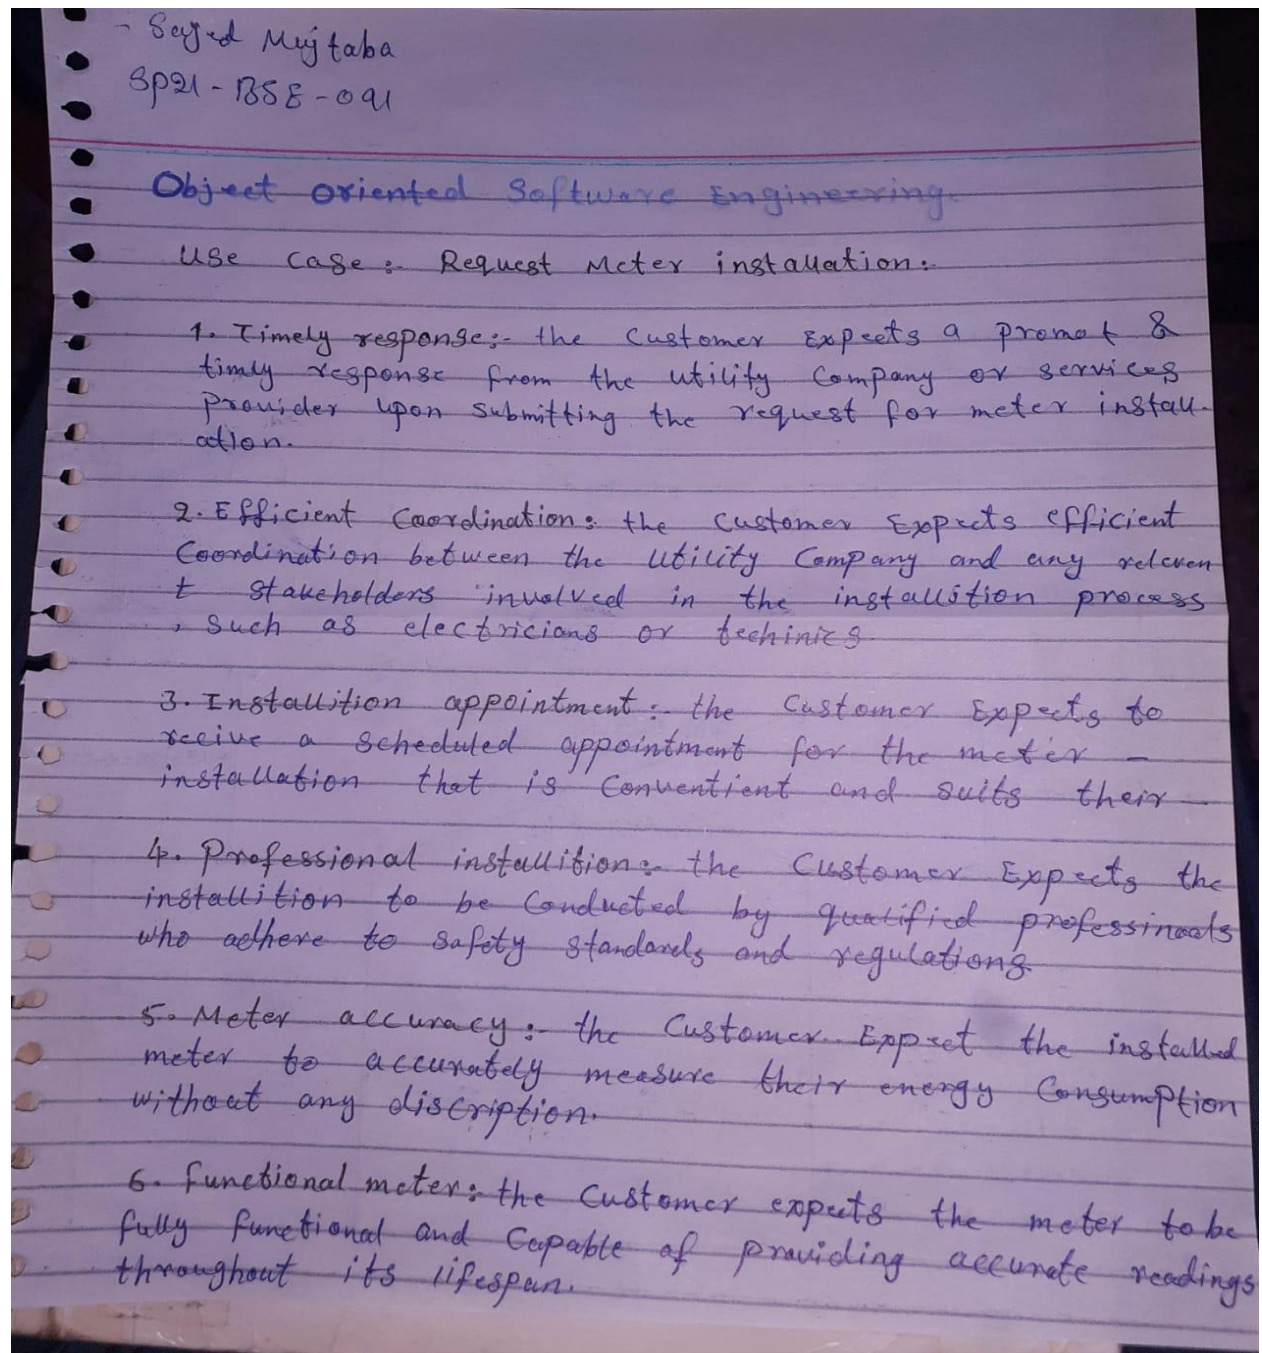 - Sayed Mujtaba
SP21-BSE-091
Object oriented Software Engineering.
Use Case:- Request Meter installation:-
1. Timely response:- the Customer Expects a promot &
timly response from the utility Company or services
Provider upon submitting the request for meter install-
ation.
2. Efficient Coordination: the Customer Expects efficient
Coordination between the utility Company and any releven
t stakeholders involved in the installition process
, such as electricians or techinics
3. Installition appointment:- the Customer Expects to
receive a scheduled appointment for the meter -
installation that is Conventient and suits their -
4. Professional installition:- the Customer Expects the
installition to be Conducted by qualified professinoals
who adhere to safety standards and regulations
5. Meter accuracy:- the Customer Expect the installed
meter to accurately measure their energy Consumption
without any discription.
6. Functional meter: the Customer expects the meter to be
fully functional and Capable of providing accurate readings
throughout its lifespan.